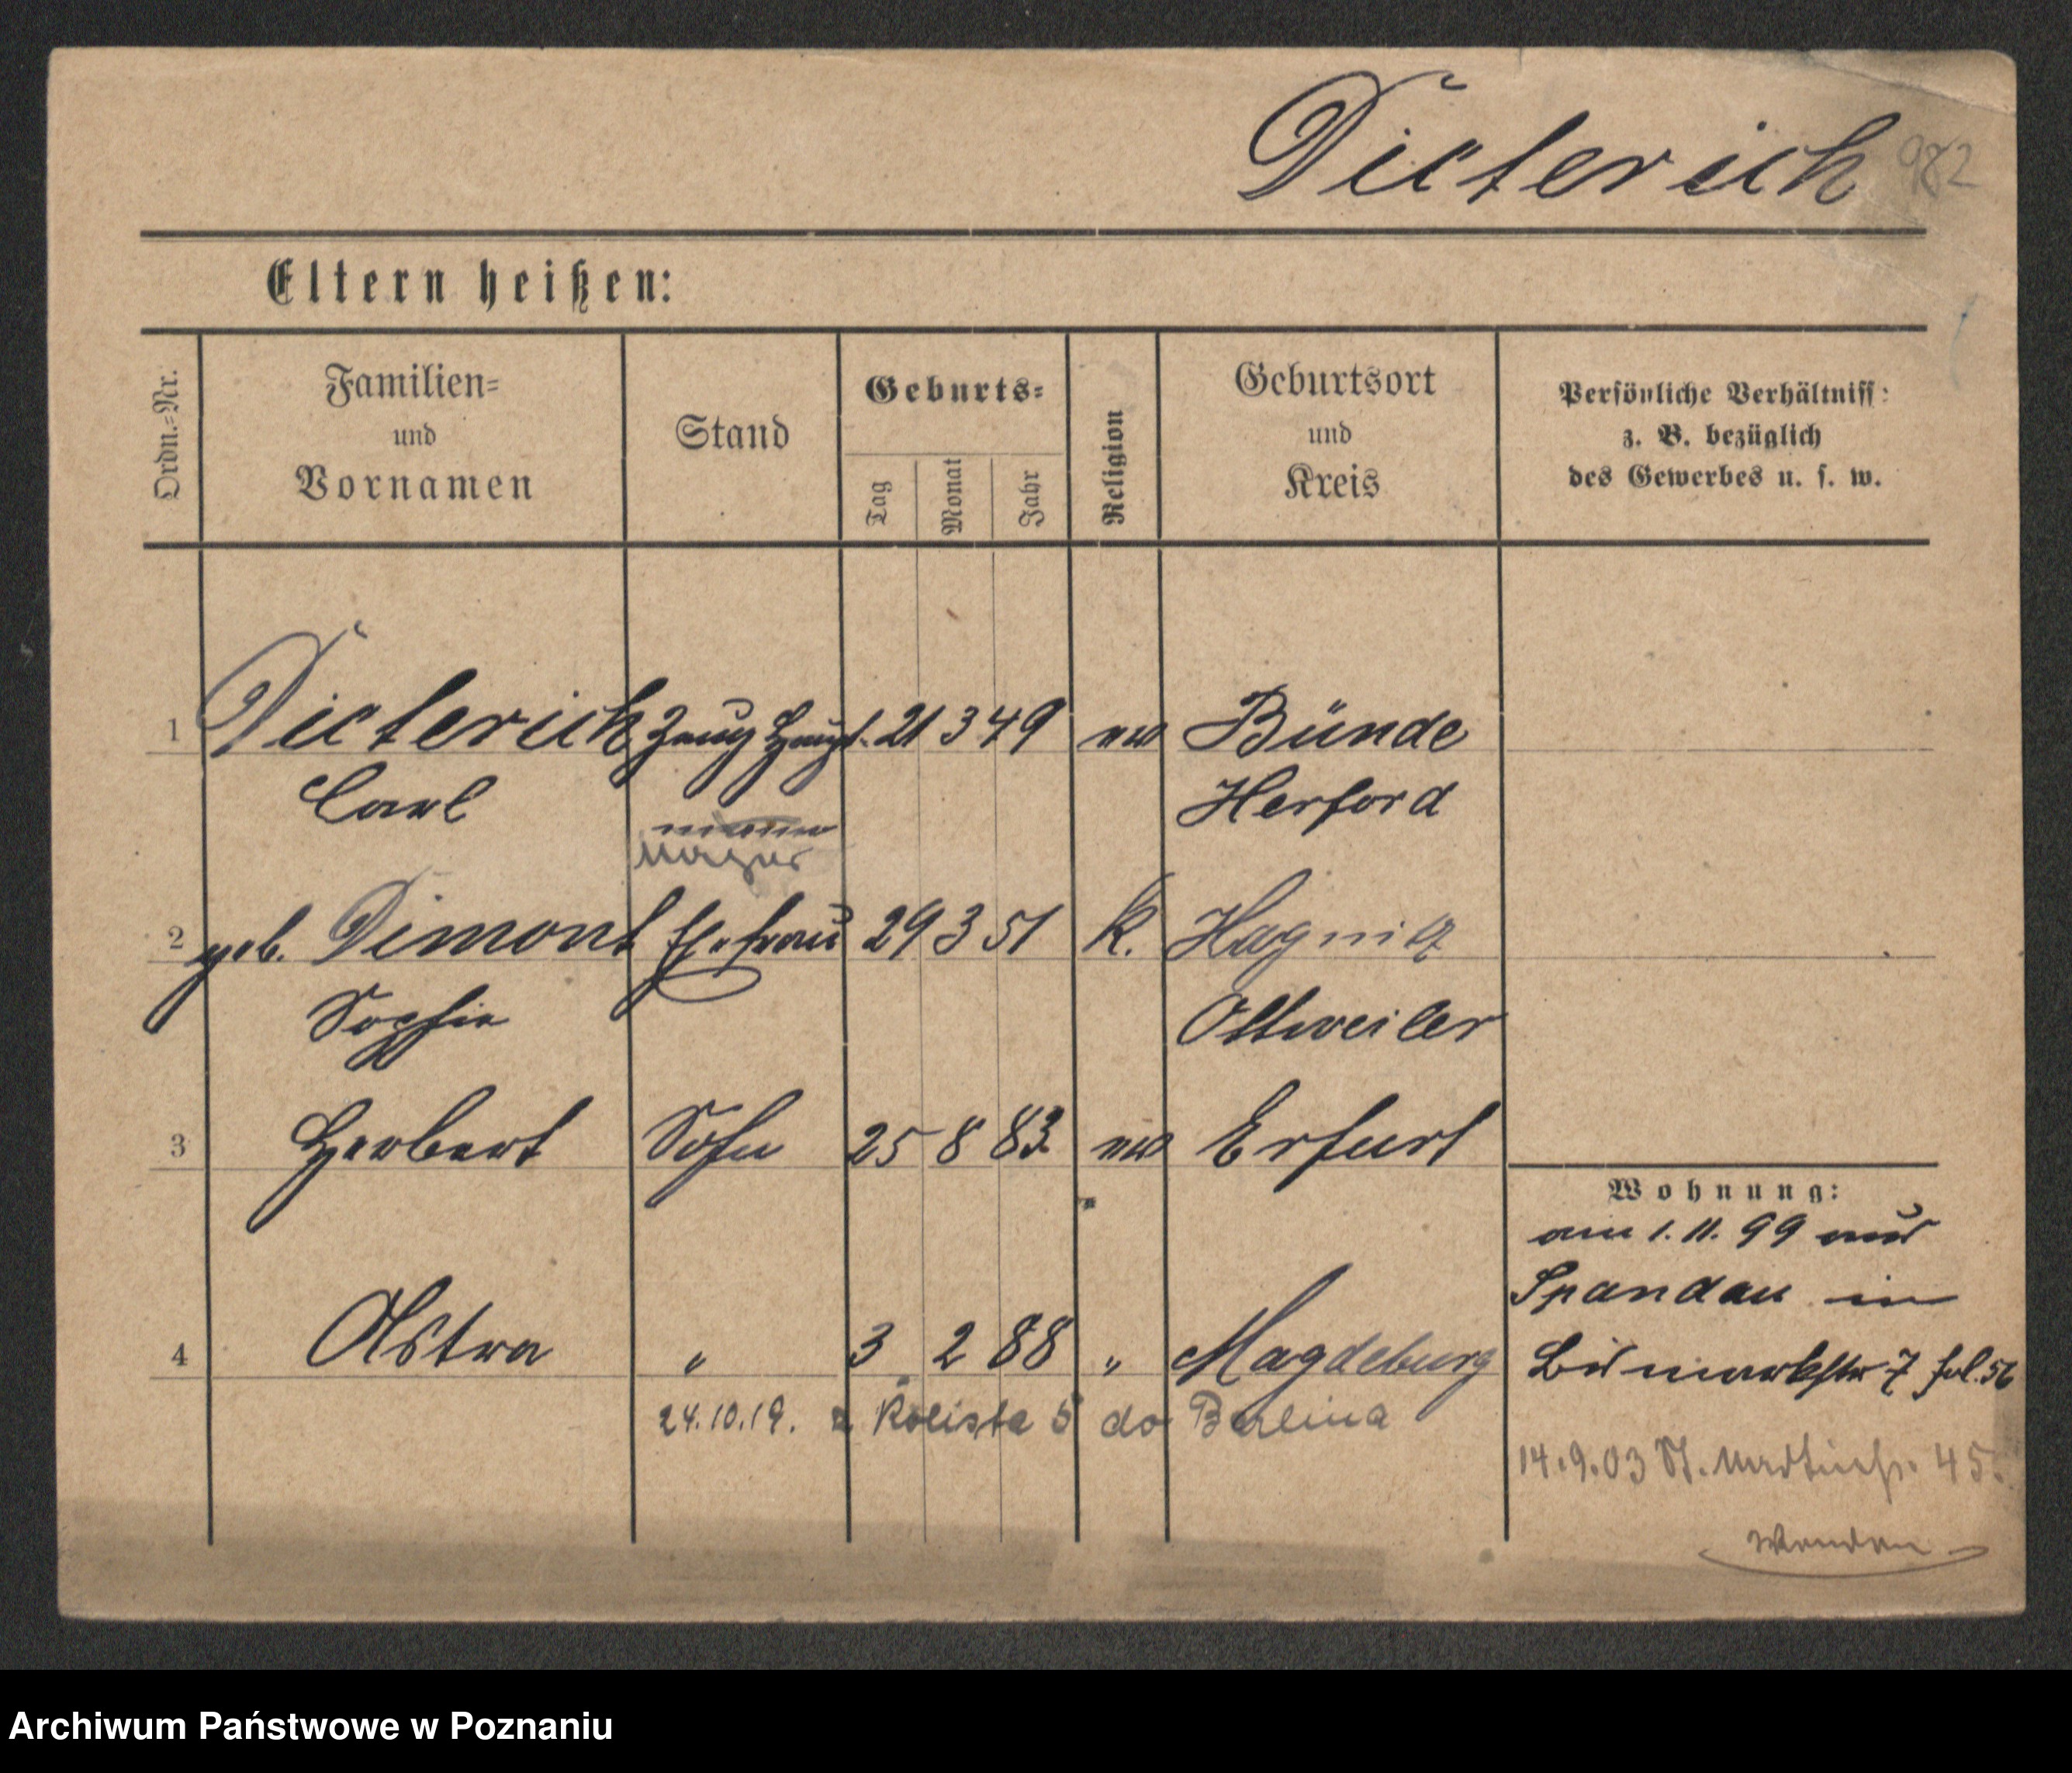 Dieterich 982
Eltern heißen:
Ordn.=Nr.
Familien=
und
Vornamen
Stand
Geburts=
Tag
Monat
Jahr
Religion
Geburtsort
und
Kreis
Persönliche Verhältniss:
z. B. bezüglich
des Gewerbes u. s. w.
1 Dieterich Zeug Haupt- 21 3 49 ev Bünde
Carl Herford
mann
Major
2 geb. Dimont Ehefrau 29 3 51 K.
Sophie Ottweiler
3 Herbert Sohn 25 8 83 ev Erfurt
Wohnung:
am 1. 11. 99 aus
Spandau in
4 Astra " 3. 2 88 " Magdeburg
Bismarkstr 7 fol. 56
24.10.19. z Kolista 5 do Berlina
14.9.03 St. Martinstr. 45.
Wenden
Archiwum Państwowe w Poznaniu